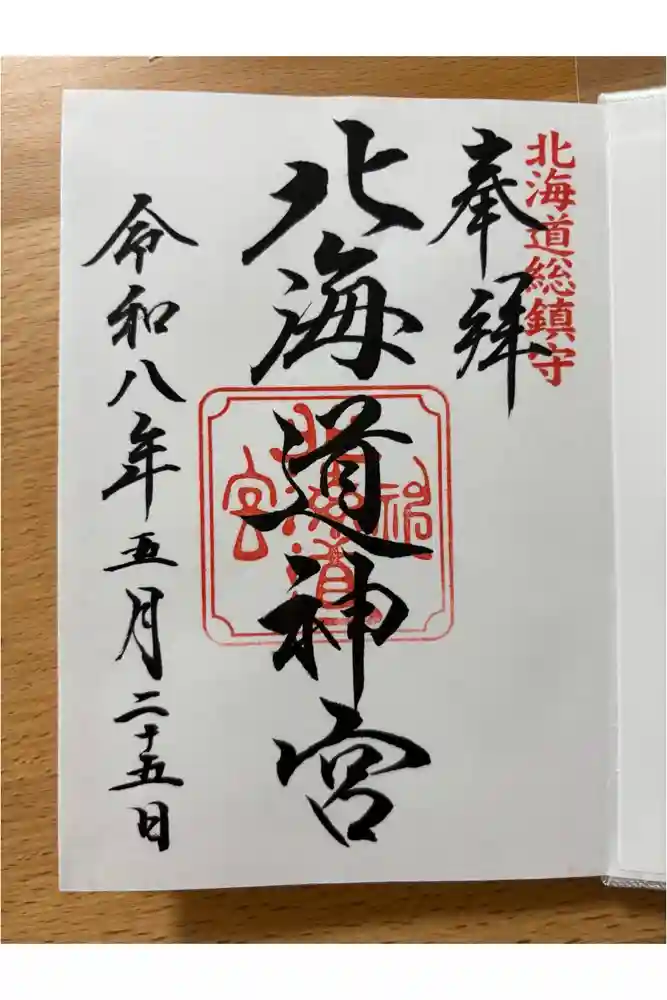 北海道総鎮守
奉拝
北海道神宮
令和八年五月二十五日